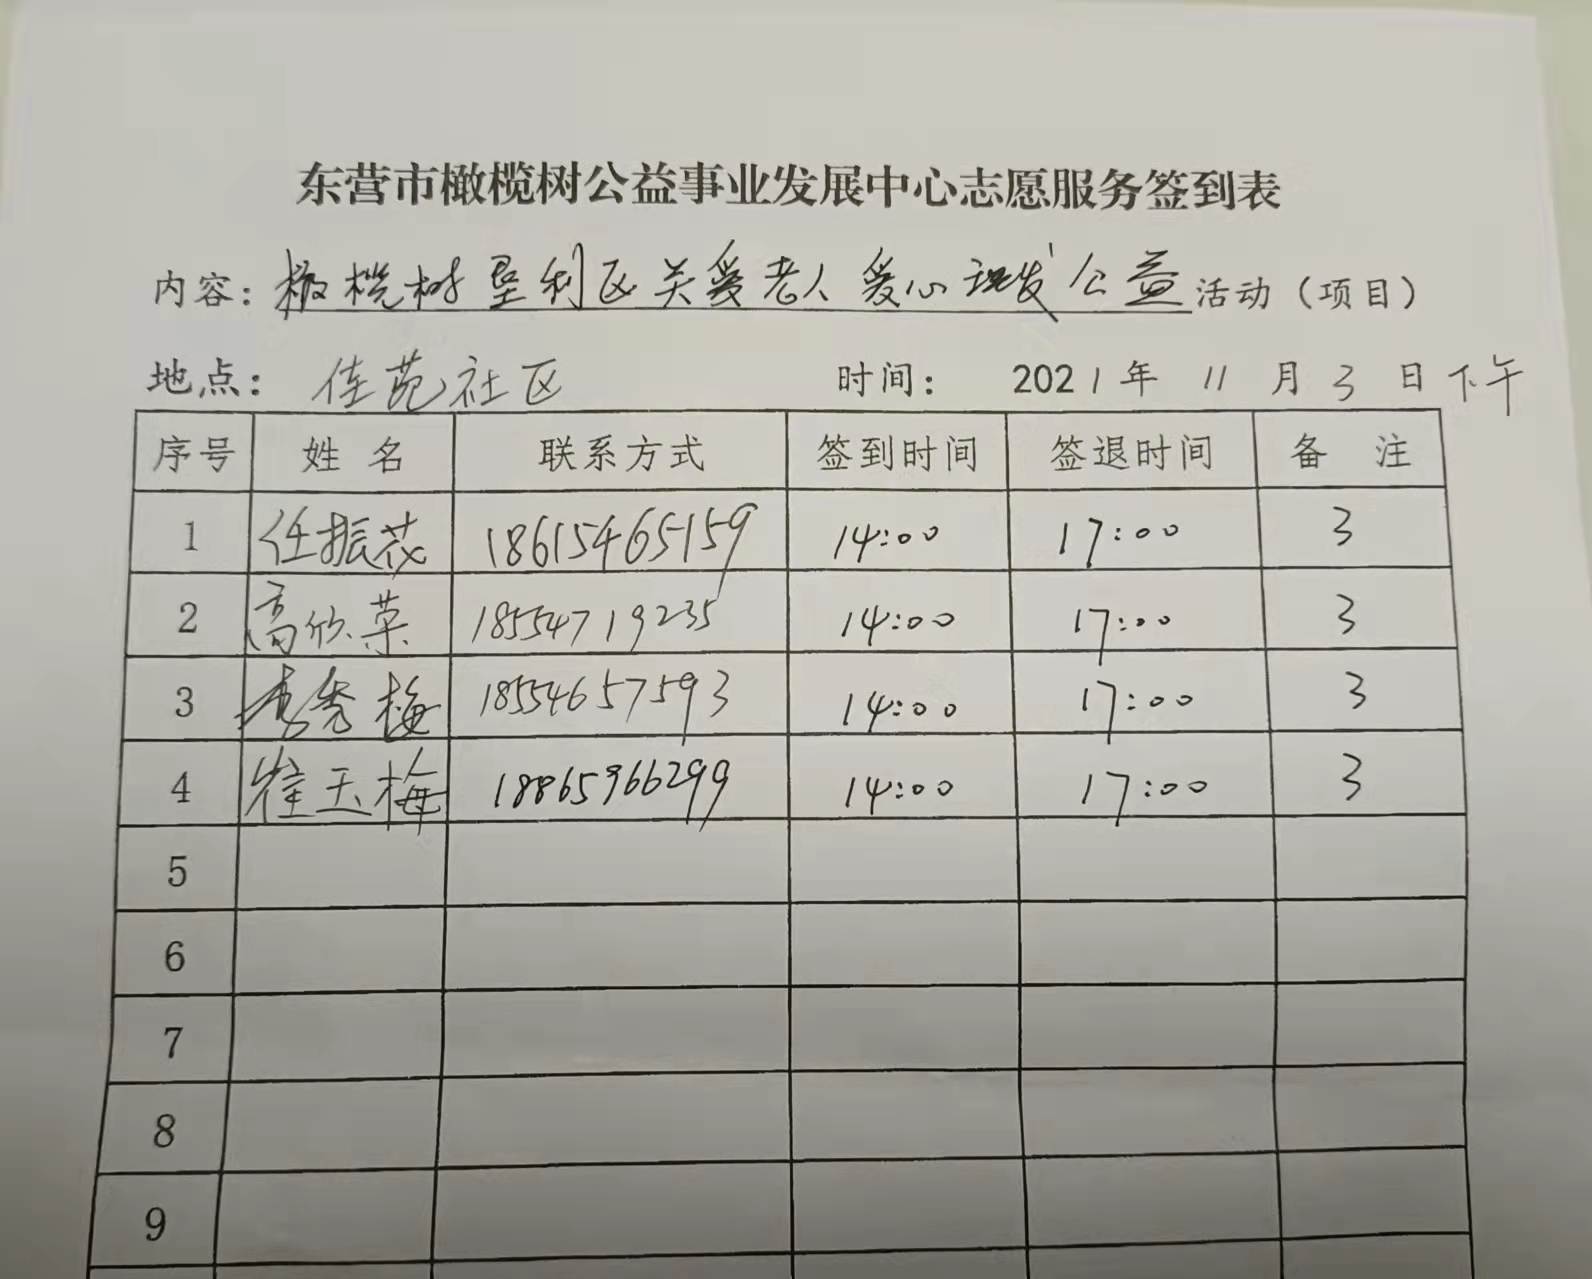 东营市橄榄树公益事业发展中心志愿服务签到表
内容：橄榄树垦利区关爱老人爱心理发公益活动（项目）
地点：佳苑社区 时间： 2021年 11 月 3 日下午
序号 姓名 联系方式 签到时间 签退时间 备 注
1 任振花 18615465159 14:00 17:00 3
2 高欣荣 18554719235 14:00 17:00 3
3 李秀梅 18554657593 14:00 17:00 3
4 崔玉梅 18865966299 14:00 17:00 3
5
6
7
8
9